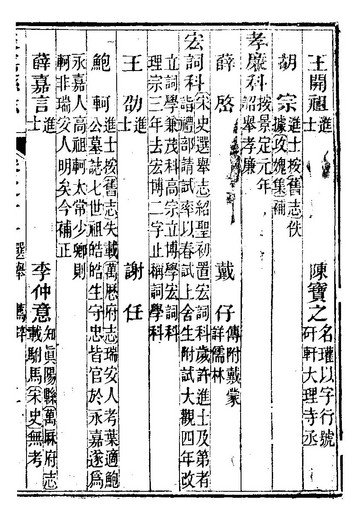 王開祖進士　陳寶之名瓘以字行號
矸軒大理寺丞
胡宗進士按舊志佚
據攻媿集補
孝廉科按景定元年
詔舉孝廉
薛啓　戴仔傳附戴蒙
詳儒林
宏詞科宋史選舉志紹聖初置宏詞科歲許進士及第者
詣禮部請試率以春試上舍生附試大觀四年改
立詞學兼茂科高宗立博學宏詞科
理宗三年去宏博二字止稱詞學科
王劭進士　謝任
鮑軻進士按舊志失載萬厯府志瑞安人考葉適鮑
公墓誌七世祖皓皓生守忠皆官於永嘉遂爲
永嘉人高祖軻太常少卿則
軻非瑞安人明矣今補正
薛嘉言進士　李仲意知眞陽縣萬厯府志
載駙馬宋史無考
選舉　薦辟